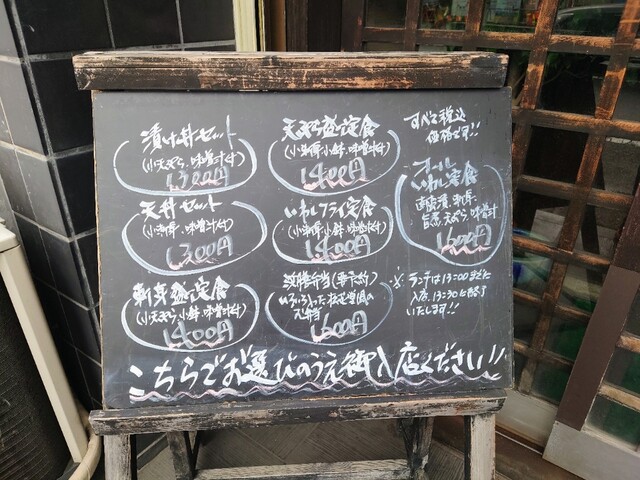 漬け丼セット
(小天ぷら、味噌汁付)
1300円
天丼セット
(小刺身、味噌汁付)
1300円
刺身盛定食
(小天ぷら小鉢、味噌汁付)
1400円
天ぷら盛定食
(小刺身小鉢、味噌汁付)
1400円
いわしフライ定食
(小刺身小鉢、味噌汁付)
1400円
弁当(要予約)
1600円
すべて税込
価格です!!
オール
いわし定食
天ぷら、味噌汁
1600円
※ランチは13:00までに
入店、13:30お終了
いたします!
こちらでお選びのうえ御入店ください!!